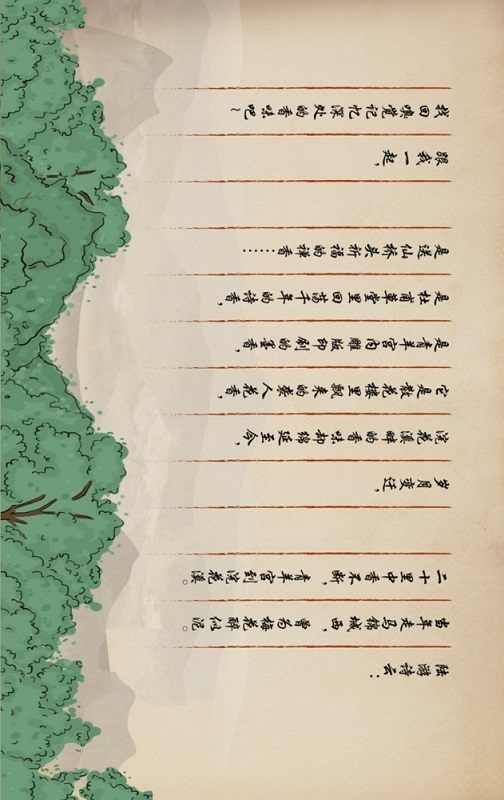 陆游诗云:
当年走马锦城西,曾为梅花醉似泥。
二十里中香不断,青羊宫到浣花溪。
岁月变迁,
浣花溪畔的香味却绵延至今,
它是散花楼里飘来的袭人花香,
是青羊宫内雕版印刻的墨香,
是杜甫草堂里回荡千年的诗香,
是送仙桥头祈福的禅香……
跟我一起,
找回嗅觉记忆深处的香味吧~